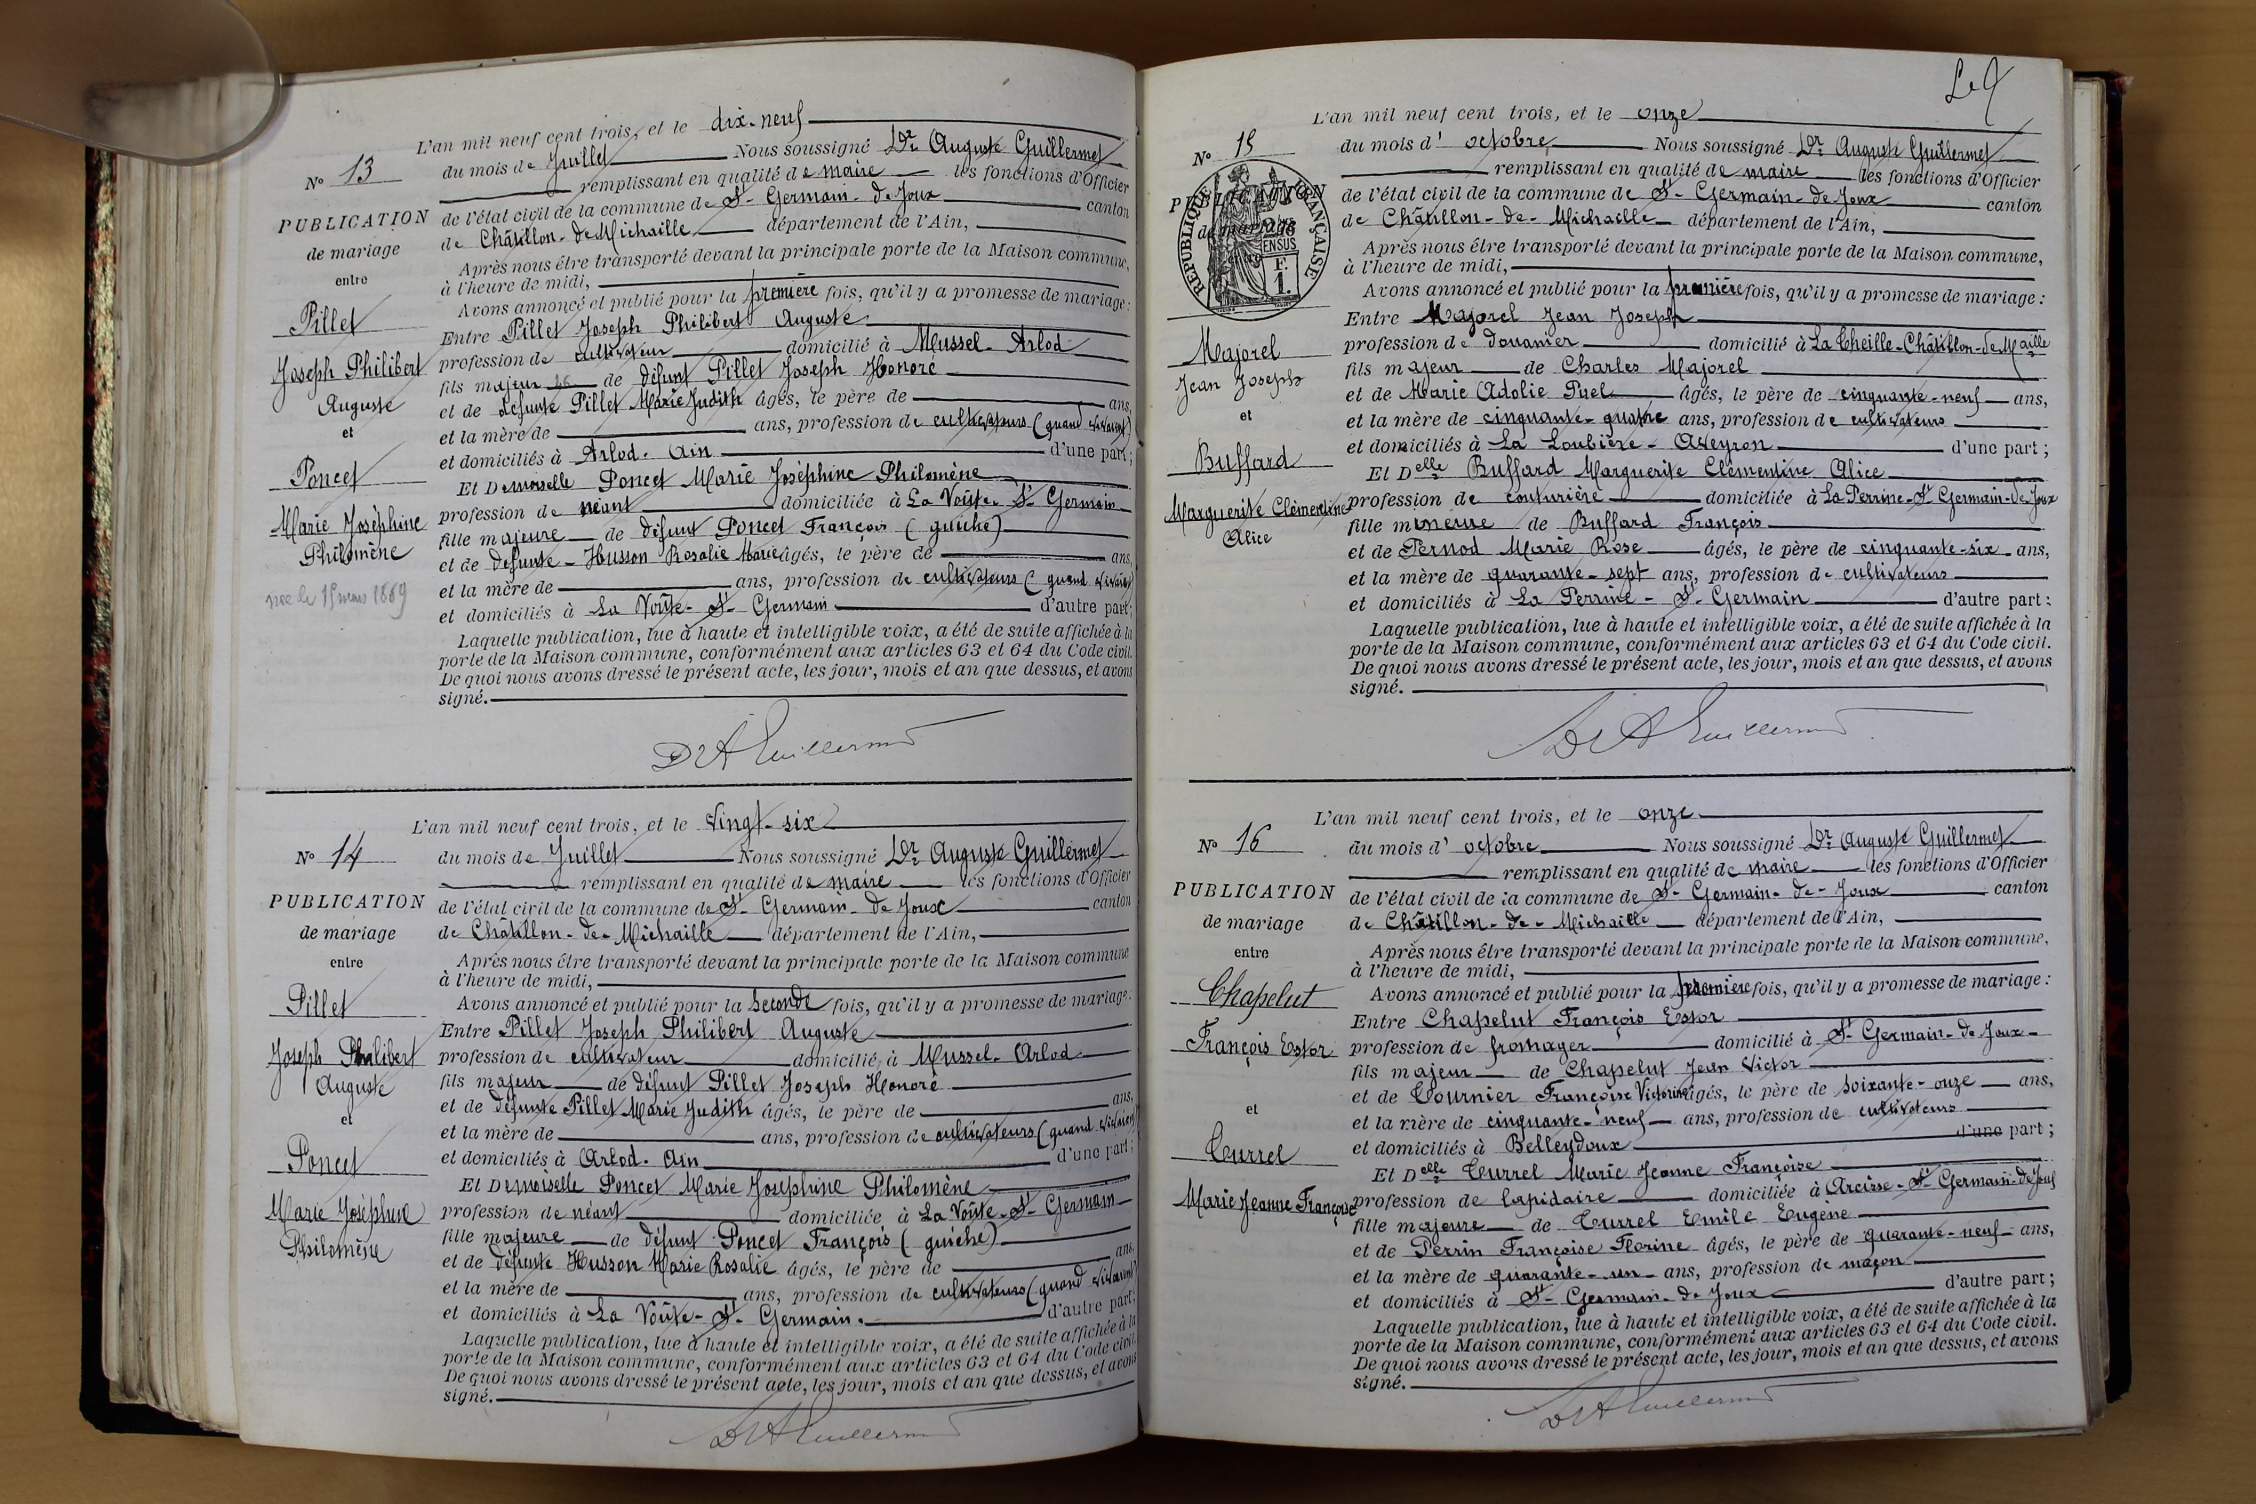 L'an mil neuf cent trois, et le dix-neuf
No 13
du mois de Juillet Nous soussigné Dr Auguste Guillermet
remplissant en qualité de maire les fonctions d'Officier
PUBLICATION
de l'état civil de la commune de St-Germain-de-Joux canton
de mariage
de Châtillon-de-Michaille département de l'Ain,
entre
Après nous être transporté devant la principale porte de la Maison commune,
à l'heure de midi,
Avons annoncé et publié pour la première fois, qu'il y a promesse de mariage:
Pillet
Entre Pillet Joseph Philibert Auguste
Joseph Philibert
profession de cultivateur domicilié à Mussel-Arlod
fils majeur de défunt Pillet Joseph Honoré
Auguste
et de défunte Pillet Marie Judith âgés, le père de ans,
et
et la mère de ans, profession de cultivateurs (quand vivaient)
et domiciliés à Arlod. Ain d'une part;
Poncet
Et Demoiselle Poncet Marie Joséphine Philomène
profession de néant domiciliée à La Voûte-St-Germain
Marie Joséphine
fille majeure de défunt Poncet François (guiche)
Philomène
et de défunte - Husson Rosalie Marie âgés, le père de ans,
née le 15 mars 1869
et la mère de ans, profession de cultivateurs (quand vivaient)
et domiciliés à La Voûte-St-Germain d'autre part;
Laquelle publication, lue à haute et intelligible voix, a été de suite affichée à la
porte de la Maison commune, conformément aux articles 63 et 64 du Code civil.
De quoi nous avons dressé le présent acte, les jour, mois et an que dessus, et avons
signé.
Dr A Guillermet
L'an mil neuf cent trois, et le vingt-six
No 14
du mois de Juillet Nous soussigné Dr Auguste Guillermet
remplissant en qualité de maire les fonctions d'Officier
PUBLICATION
de l'état civil de la commune de St-Germain-de-Joux canton
de mariage
de Châtillon-de-Michaille département de l'Ain,
entre
Après nous être transporté devant la principale porte de la Maison commune
à l'heure de midi,
Pillet
Avons annoncé et publié pour la seconde fois, qu'il y a promesse de mariage:
Entre Pillet Joseph Philibert Auguste
Joseph Philibert
profession de cultivateur domicilié à Mussel-Arlod
Auguste
fils majeur de défunt Pillet Joseph Honoré
et de défunte Pillet Marie Judith âgés, le père de ans,
et
et la mère de ans, profession de cultivateurs (quand vivaient)
Poncet
et domiciliés à Arlod. Ain d'une part;
Et Demoiselle Poncet Marie Joséphine Philomène
Marie Joséphine
profession de néant domiciliée à La Voûte-St-Germain
Philomène
fille majeure de défunt Poncet François (guiche)
et de défunte Husson Marie Rosalie âgés, le père de ans,
et la mère de ans, profession de cultivateurs (quand vivaient)
et domiciliés à La Voûte-St-Germain. d'autre part;
Laquelle publication, lue à haute et intelligible voix, a été de suite affichée à la
porte de la Maison commune, conformément aux articles 63 et 64 du Code civil.
De quoi nous avons dressé le présent acte, les jour, mois et an que dessus, et avons
signé.
Dr A Guillermet
L'an mil neuf cent trois, et le onze
No 15
du mois d'octobre Nous soussigné Dr Auguste Guillermet
remplissant en qualité de maire les fonctions d'Officier
PUBLICATION
RÉPUBLIQUE FRANÇAISE
de l'état civil de la commune de St-Germain-de-Joux canton
de mariage
EN SUS
F. 1.
de Châtillon-de-Michaille département de l'Ain,
Après nous être transporté devant la principale porte de la Maison commune,
à l'heure de midi,
Avons annoncé et publié pour la première fois, qu'il y a promesse de mariage:
Entre Majorel Jean Joseph
Majorel
profession de douanier domicilié à La Cheille-Châtillon-de-Maille
Jean Joseph
fils majeur de Charles Majorel
et de Marie Adolie Puel âgés, le père de cinquante-neuf ans,
et
et la mère de cinquante-quatre ans, profession de cultivateurs
et domiciliés à La Loubière-Aveyron d'une part;
Buffard
Et Delle Buffard Marguerite Clémentine Alice
Marguerite Clémentine
profession de couturière domiciliée à La Perrine-St-Germain-de-Joux
Alice
fille mineure de Buffard François
et de Pernod Marie Rose âgés, le père de cinquante-six ans,
et la mère de quarante-sept ans, profession de cultivateurs
et domiciliés à La Perrine-St-Germain d'autre part:
Laquelle publication, lue à haute et intelligible voix, a été de suite affichée à la
porte de la Maison commune, conformément aux articles 63 et 64 du Code civil.
De quoi nous avons dressé le présent acte, les jour, mois et an que dessus, et avons
signé.
Dr A Guillermet
L'an mil neuf cent trois, et le onze
No 16
du mois d'octobre Nous soussigné Dr Auguste Guillermet
remplissant en qualité de maire les fonctions d'Officier
PUBLICATION
de l'état civil de la commune de St-Germain-de-Joux canton
de mariage
de Châtillon-de-Michaille département de l'Ain,
entre
Après nous être transporté devant la principale porte de la Maison commune,
à l'heure de midi,
Chapelut
Avons annoncé et publié pour la première fois, qu'il y a promesse de mariage:
Entre Chapelut François Estor
François Estor
profession de fromager domicilié à St-Germain-de-Joux
fils majeur de Chapelut Jean Victor
et
et de Tournier Françoise Victorine âgés, le père de soixante-onze ans,
et la mère de cinquante-neuf ans, profession de cultivateurs
Turrel
et domiciliés à Belleydoux d'une part;
Et Delle Turrel Marie Jeanne Françoise
Marie Jeanne Françoise
profession de lapidaire domiciliée à Arcisse-St-Germain-de-Joux
fille majeure de Turrel Emile Eugène
et de Perrin Françoise Florine âgés, le père de quarante-neuf ans,
et la mère de quarante-un ans, profession de maçon
et domiciliés à St-Germain-de-Joux d'autre part;
Laquelle publication, lue à haute et intelligible voix, a été de suite affichée à la
porte de la Maison commune, conformément aux articles 63 et 64 du Code civil.
De quoi nous avons dressé le présent acte, les jour, mois et an que dessus, et avons
signé.
Dr A Guillermet